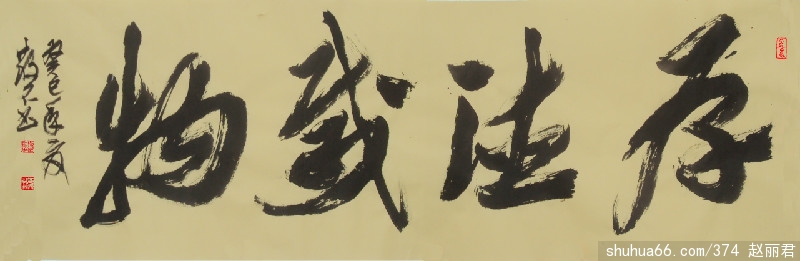 厚德载物
癸巳年夏
书
shuhua66.com/374 赵丽君